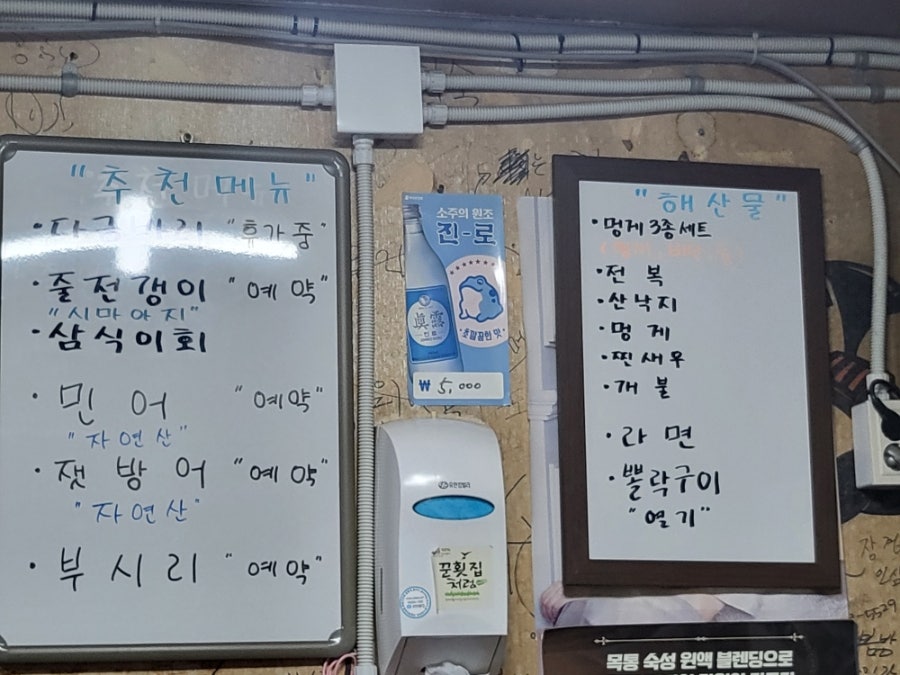 "추천메뉴"
"휴가중"
·줄전갱이 "예약"
"시마아지"
·삼식이회
·민어 "예약"
"자연산"
·잿방어 "예약"
"자연산"
·부시리 "예약"
소주의 원조
진-로
眞露
₩ 5,000
유한킴벌리
꾼횟집
처럼
"해산물"
·멍게 3종세트
·전복
·산낙지
·멍게
·찐새우
·개불
·라면
·뽈락구이
"열기"
목통 숙성 원액 블렌딩으로